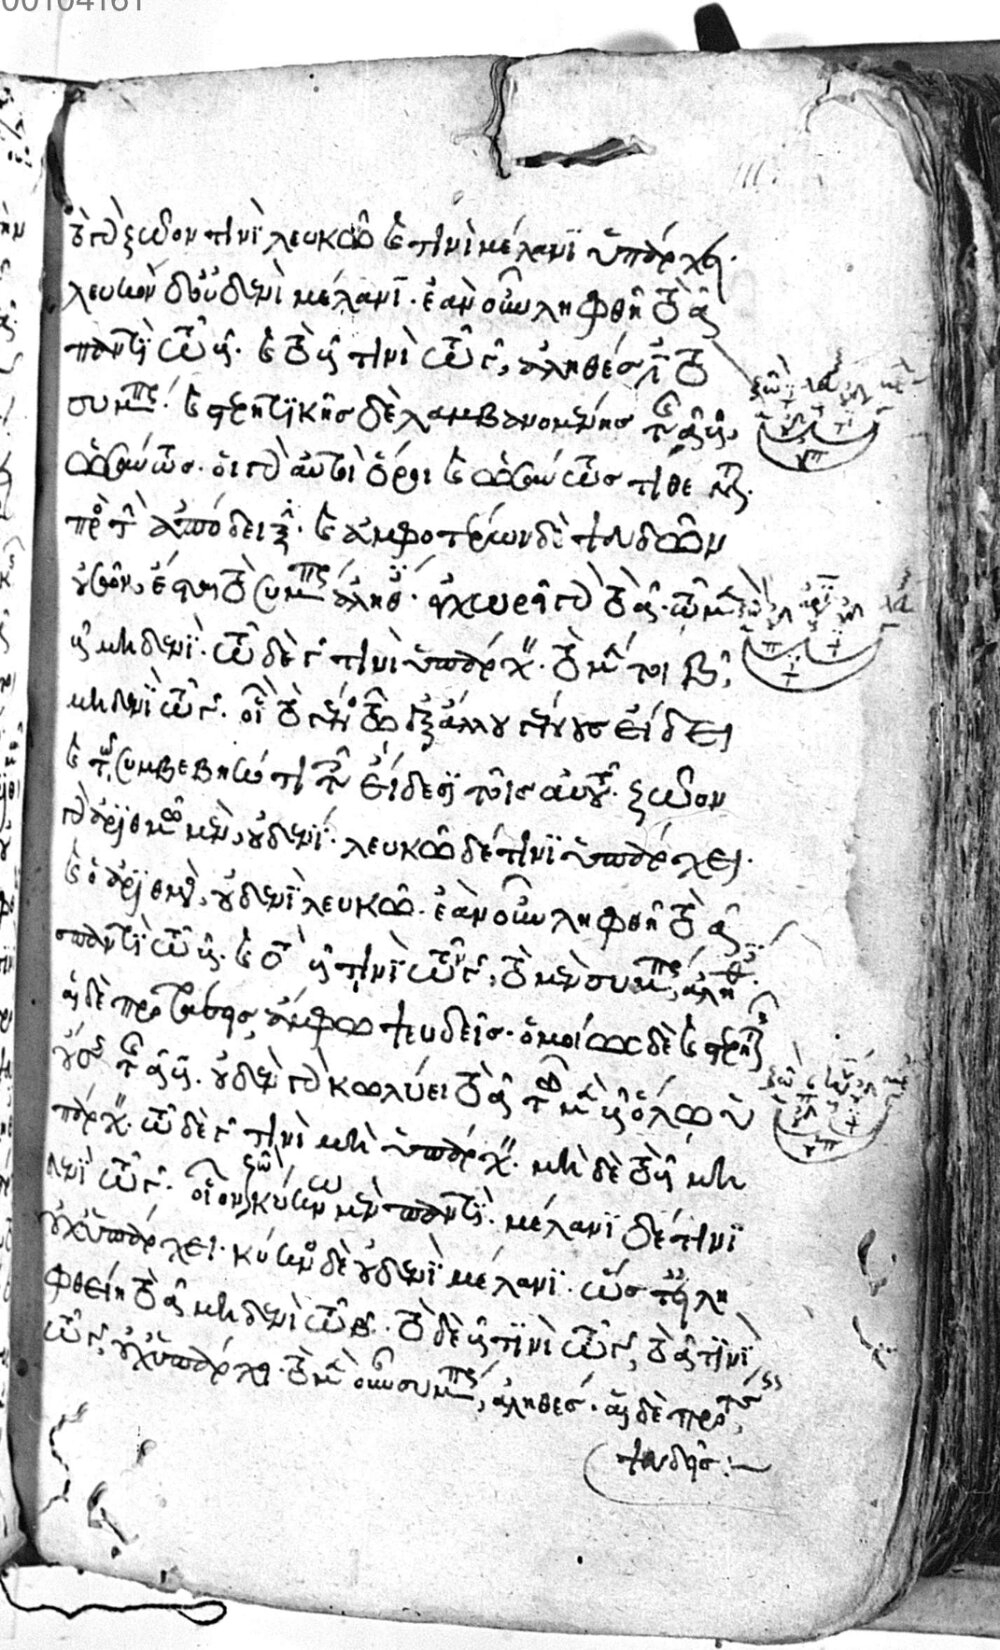 00104161
τὸ ζῶον τινὶ λευκῶ καὶ τινὶ μέλανι ὑπάρχει.
λευκὸν δ' οὐδενὶ μέλανι. ἐὰν οὖν ληφθῆ τὸ α
παντὶ τῶ β. καὶ τὸ β τινὶ τῶ γ, ἀληθές τὸ
συμπ. καὶ στερητικῆς δὲ λαμβανομένης τῆς αβ,
ὡσαύτως. οἱ γὰρ αὐτοὶ ὅροι καὶ ὡσαύτως τιθέ
πρὸς τὴν ἀπόδειξιν. καὶ ἀμφοτέρων δὲ ψευδῶν
οὐσῶν, ἔσται τὸ συμπ ἀληθ. ἐγχωρεῖ γὰρ τὸ α τῶ μὲν
β μηδενὶ. τῶ δὲ γ τινὶ ὑπάρχ. τὸ μέντοι β,
μηδενὶ τῶ γ. οἷον τὸ γένος τῶ ἐξ ἄλλου γένους εἴδει
καὶ τῶ συμβεβηκότι τοῖς εἴδεσι τοῖς αὐτοῦ. ζῶον
γὰρ ἀριθμῶ μὲν, οὐδενί. λευκῶ δέ τινι ὑπάρχει.
καὶ ὁ ἀριθμὸς, οὐδενὶ λευκῶ. ἐὰν οὖν ληφθῆ τὸ α
παντὶ τῶ β. καὶ τὸ β τινὶ τῶ γ, τὸ μὲν συμπ, ἀληθ.
αἱ δὲ προτάσεις, ἄμφω ψευδεῖς. ὁμοίως δὲ καὶ στερητικῆς
οὔσης τῆς αβ. οὐδὲν γὰρ κωλύει τὸ α τῶ μὲν β ὅλω ὑ
πάρχ. τῶ δὲ γ τινὶ μὴ ὑπάρχ. μηδὲ τὸ β μη
δενὶ τῶ γ. οἷον ζῶον κύκνω μὲν παντὶ. μέλανι δέ τινι
οὐχ ὑπάρχει. κύκνος δὲ οὐδενὶ μέλανι. ὥστ' εἰ λη
φθείη τὸ α μηδενὶ τῶ β. τὸ δὲ β τινὶ τῶ γ, τὸ α τινὶ
τῶ γ, οὐχ ὑπάρχει. τὸ μὲν οὖν συμπ, ἀληθές. αἱ δὲ προτάσεις,
ψευδεῖς: